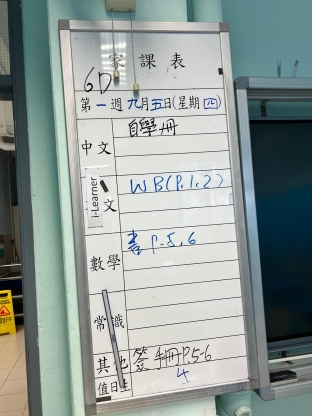 家課表
6D
第一週九月五日(星期四)
中文 自學冊
i-Learner
文 WB(P.1.2)
數學 書 P.5,6
常識
其他 簽手冊P.5-6
值日生 4